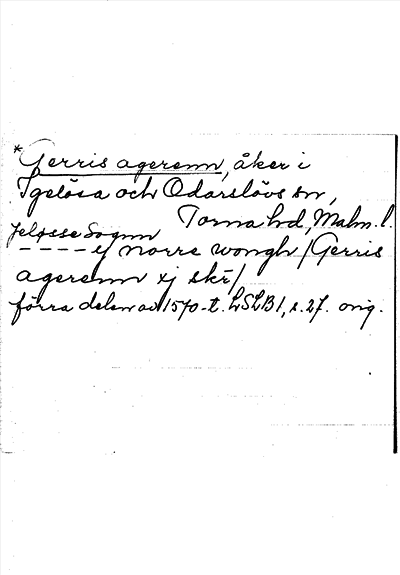 *Gerris agerenn, åker i
Igelösa och Odarslövs sn,
Torna hd, Malm. l.
Jeløsse Sognn
---- i norre wongh /Gerris
agerenn xj skr/
förra delen av 1570-t. LSLB 1, s. 27. orig.